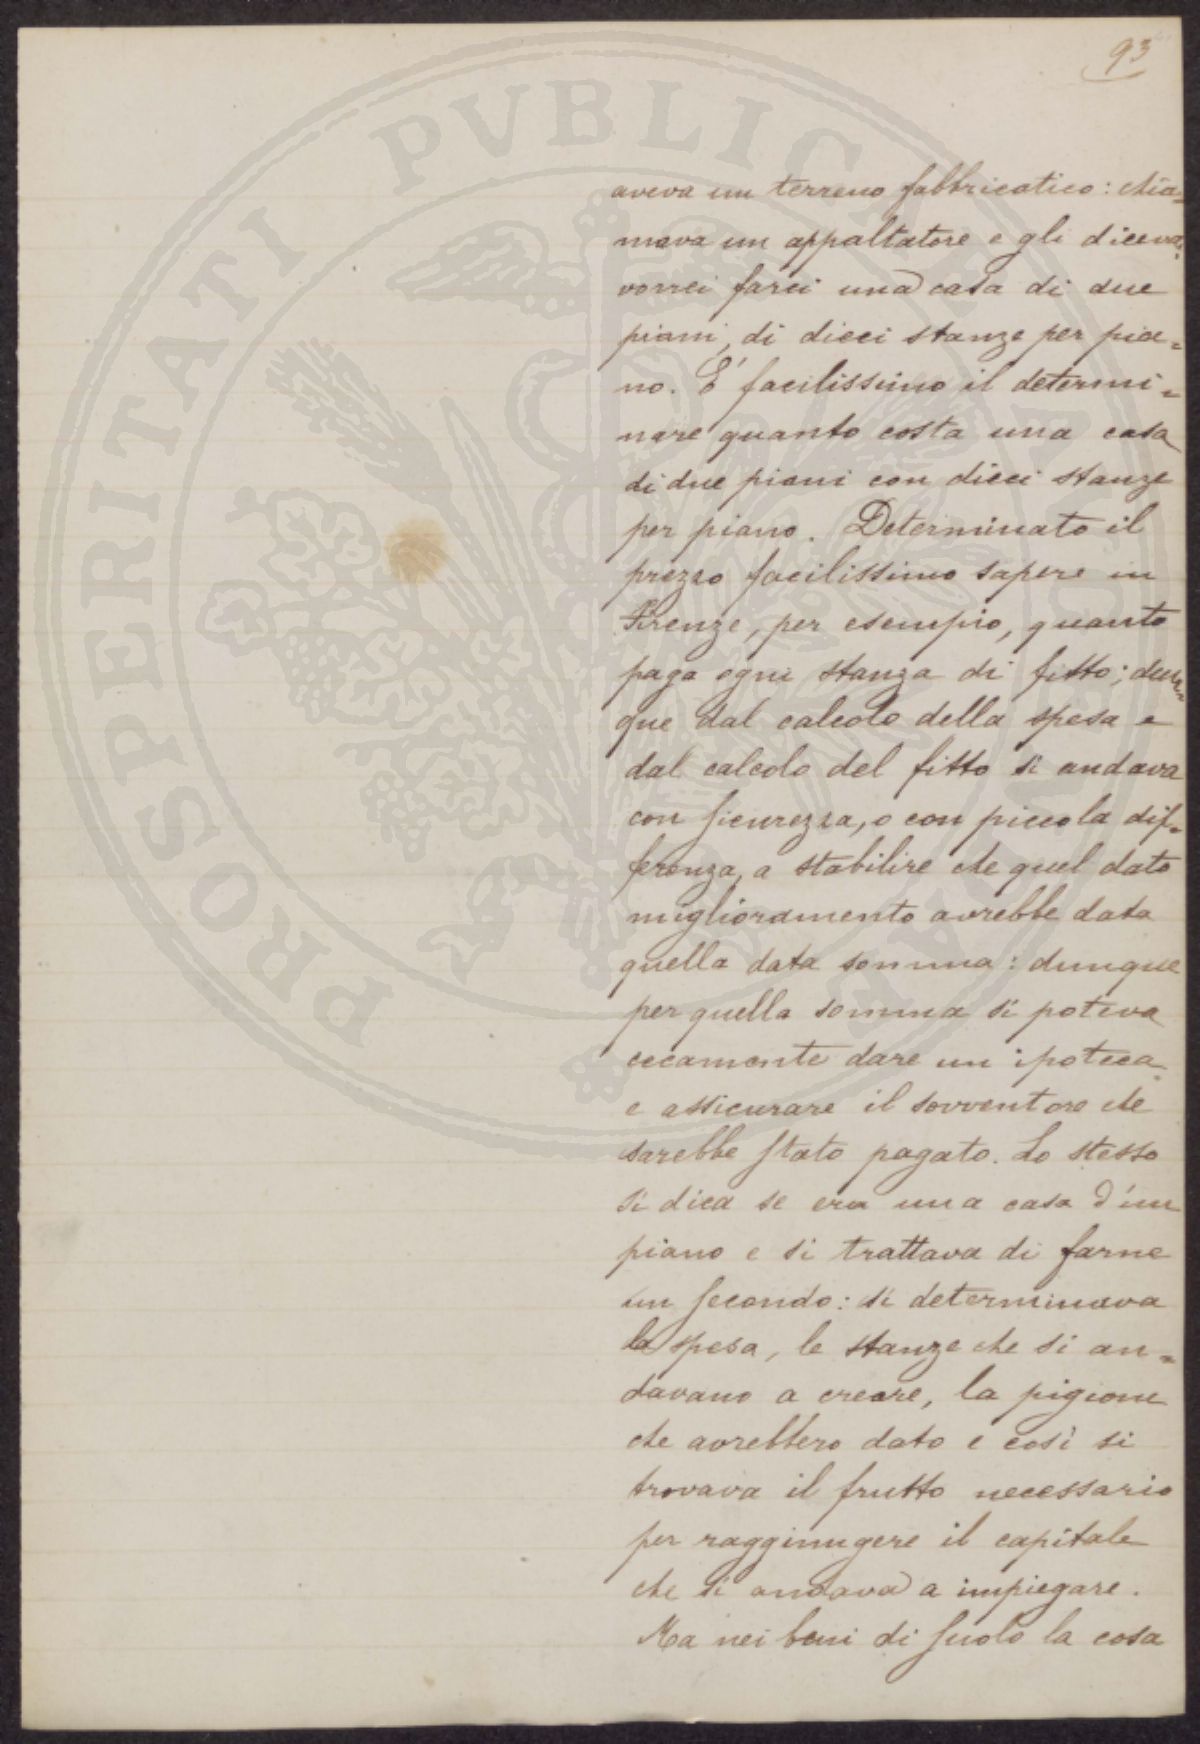 93
aveva un terreno fabbricatico: chia=
mava un appaltatore e gli diceva:
vorrei farci una casa di due
piani, di dieci stanze per pia=
no. È facilissimo il determi=
nare quanto costa una casa
di due piani con dieci stanze
per piano. Determinato il
prezzo facilissimo sapere in
Firenze, per esempio, quanto
paga ogni stanza di fitto; dun=
que dal calcolo della spesa e
dal calcolo del fitto si andava
con sicurezza, o con piccola dif=
ferenza, a stabilire che quel dato
miglioramento avrebbe data
quella data somma: dunque
per quella somma si poteva
cecamente dare un ipoteca
e assicurare il sovventore che
sarebbe stato pagato. Lo stesso
si dica se era una casa d'un
piano e si trattava di farne
un secondo: si determinava
la spesa, le stanze che si an=
davano a creare, la pigione
che avrebbero dato e così si
trovava il frutto necessario
per raggiungere il capitale
che si andava a impiegare.
Ma nei beni di suolo la cosa
PROSPERITATI PVBLICAE